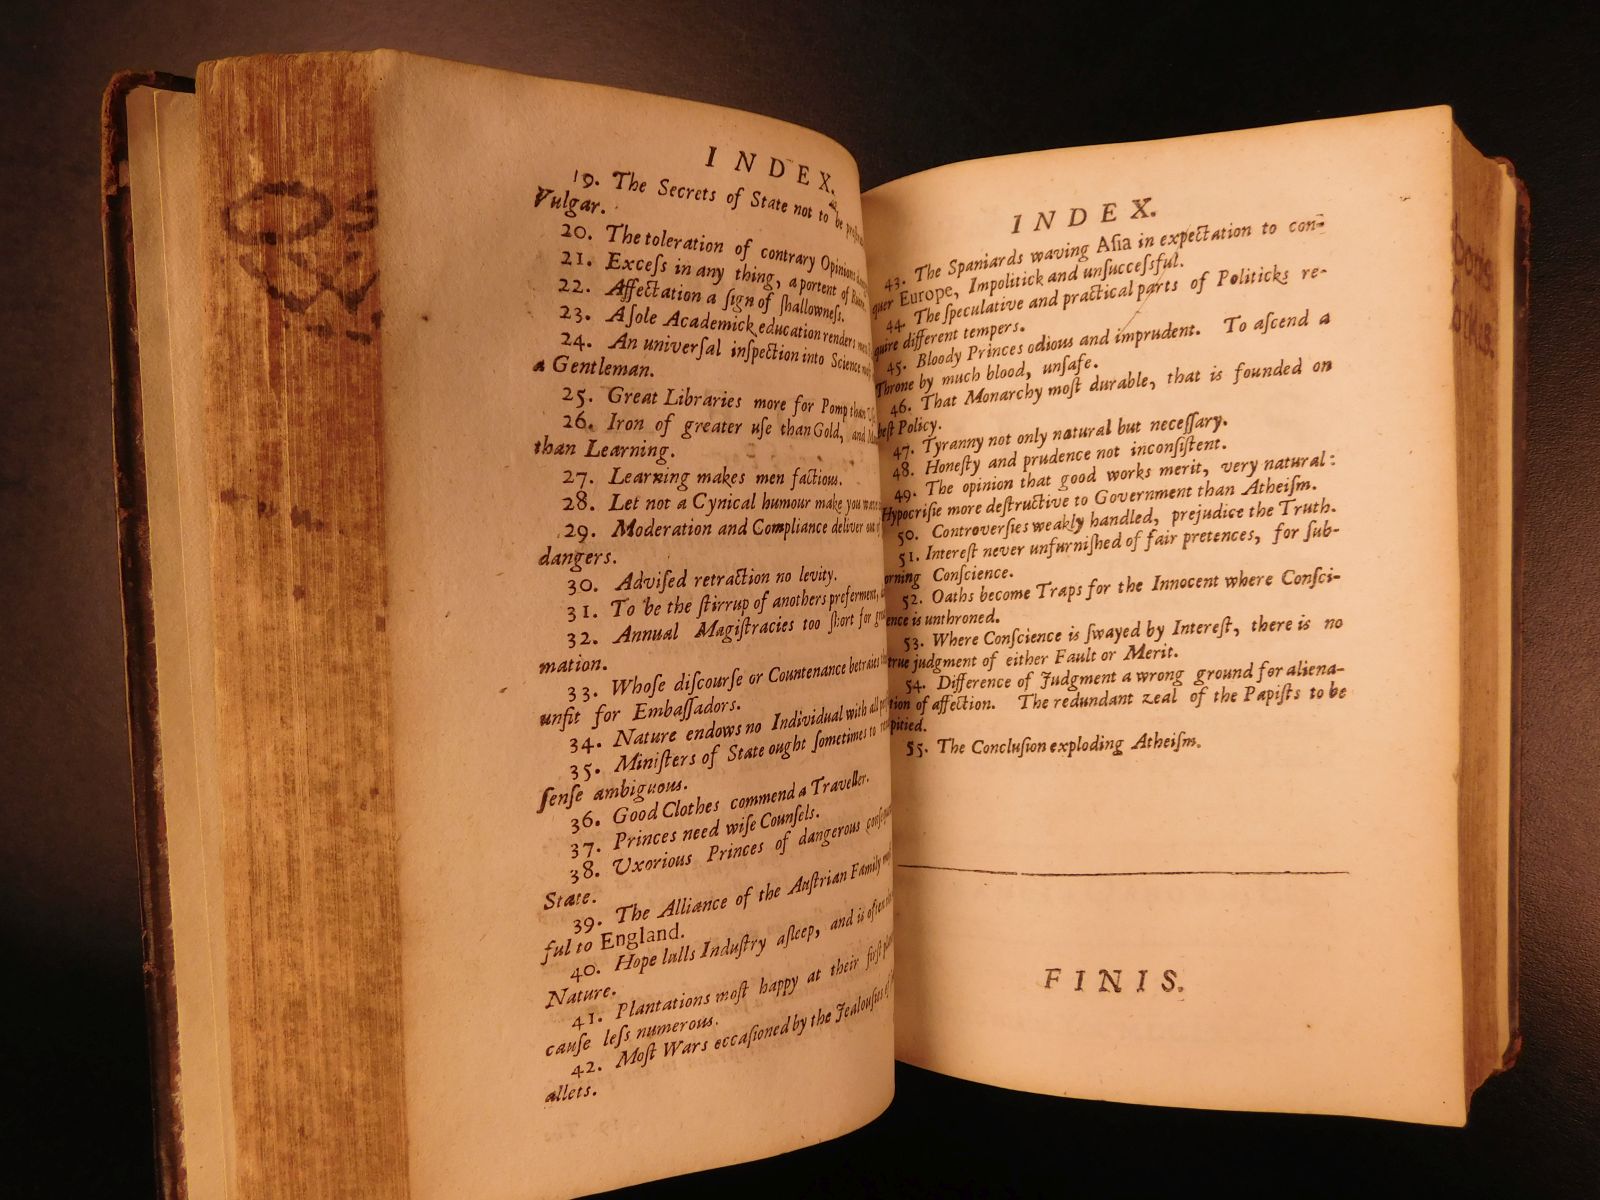 INDEX.
19. The Secrets of State not to be
Vulgar.
20. The toleration of contrary Opinions
21. Exceſs in any thing, a portent of
22. Affectation a ſign of ſhallowneſs.
23. A ſole Academick education renders
24. An univerſal inſpection into Science
a Gentleman.
25. Great Libraries more for Pomp than
26. Iron of greater uſe than Gold, and
than Learning.
27. Learning makes men factious.
28. Let not a Cynical humour make you
29. Moderation and Compliance deliver
dangers.
30. Adviſed retraction no levity.
31. To be the ſtirrup of anothers preferment,
32. Annual Magiſtracies too ſhort for
mation.
33. Whoſe diſcourſe or Countenance betraies
unfit for Embaſſadors.
34. Nature endows no Individual with all
35. Miniſters of State ought ſometimes to
ſenſe ambiguous.
36. Good Clothes commend a Traveller.
37. Princes need wiſe Counſels.
38. Uxorious Princes of dangerous
State.
39. The Alliance of the Auſtrian Family
ful to England.
40. Hope lulls Induſtry aſleep, and is often
Nature.
41. Plantations moſt happy at their firſt
cauſe leſs numerous.
42. Moſt Wars occaſioned by the Jealouſies
allets.
INDEX.
43. The Spaniards waving Aſia in expectation to con-
quer Europe, Impolitick and unſucceſsful.
44. The ſpeculative and practical parts of Politicks re-
quire different tempers.
45. Bloody Princes odious and imprudent. To aſcend a
Throne by much blood, unſafe.
46. That Monarchy moſt durable, that is founded on
beſt Policy.
47. Tyranny not only natural but neceſſary.
48. Honeſty and prudence not inconſiſtent.
49. The opinion that good works merit, very natural:
Hypocriſie more deſtructive to Government than Atheiſm.
50. Controverſies weakly handled, prejudice the Truth.
51. Intereſt never unfurniſhed of fair pretences, for ſub-
orning Conſcience.
52. Oaths become Traps for the Innocent where Conſci-
ence is unthroned.
53. Where Conſcience is ſwayed by Intereſt, there is no
true judgment of either Fault or Merit.
54. Difference of Judgment a wrong ground for aliena-
tion of affection. The redundant zeal of the Papiſts to be
pitied.
55. The Concluſion exploding Atheiſm.
FINIS.